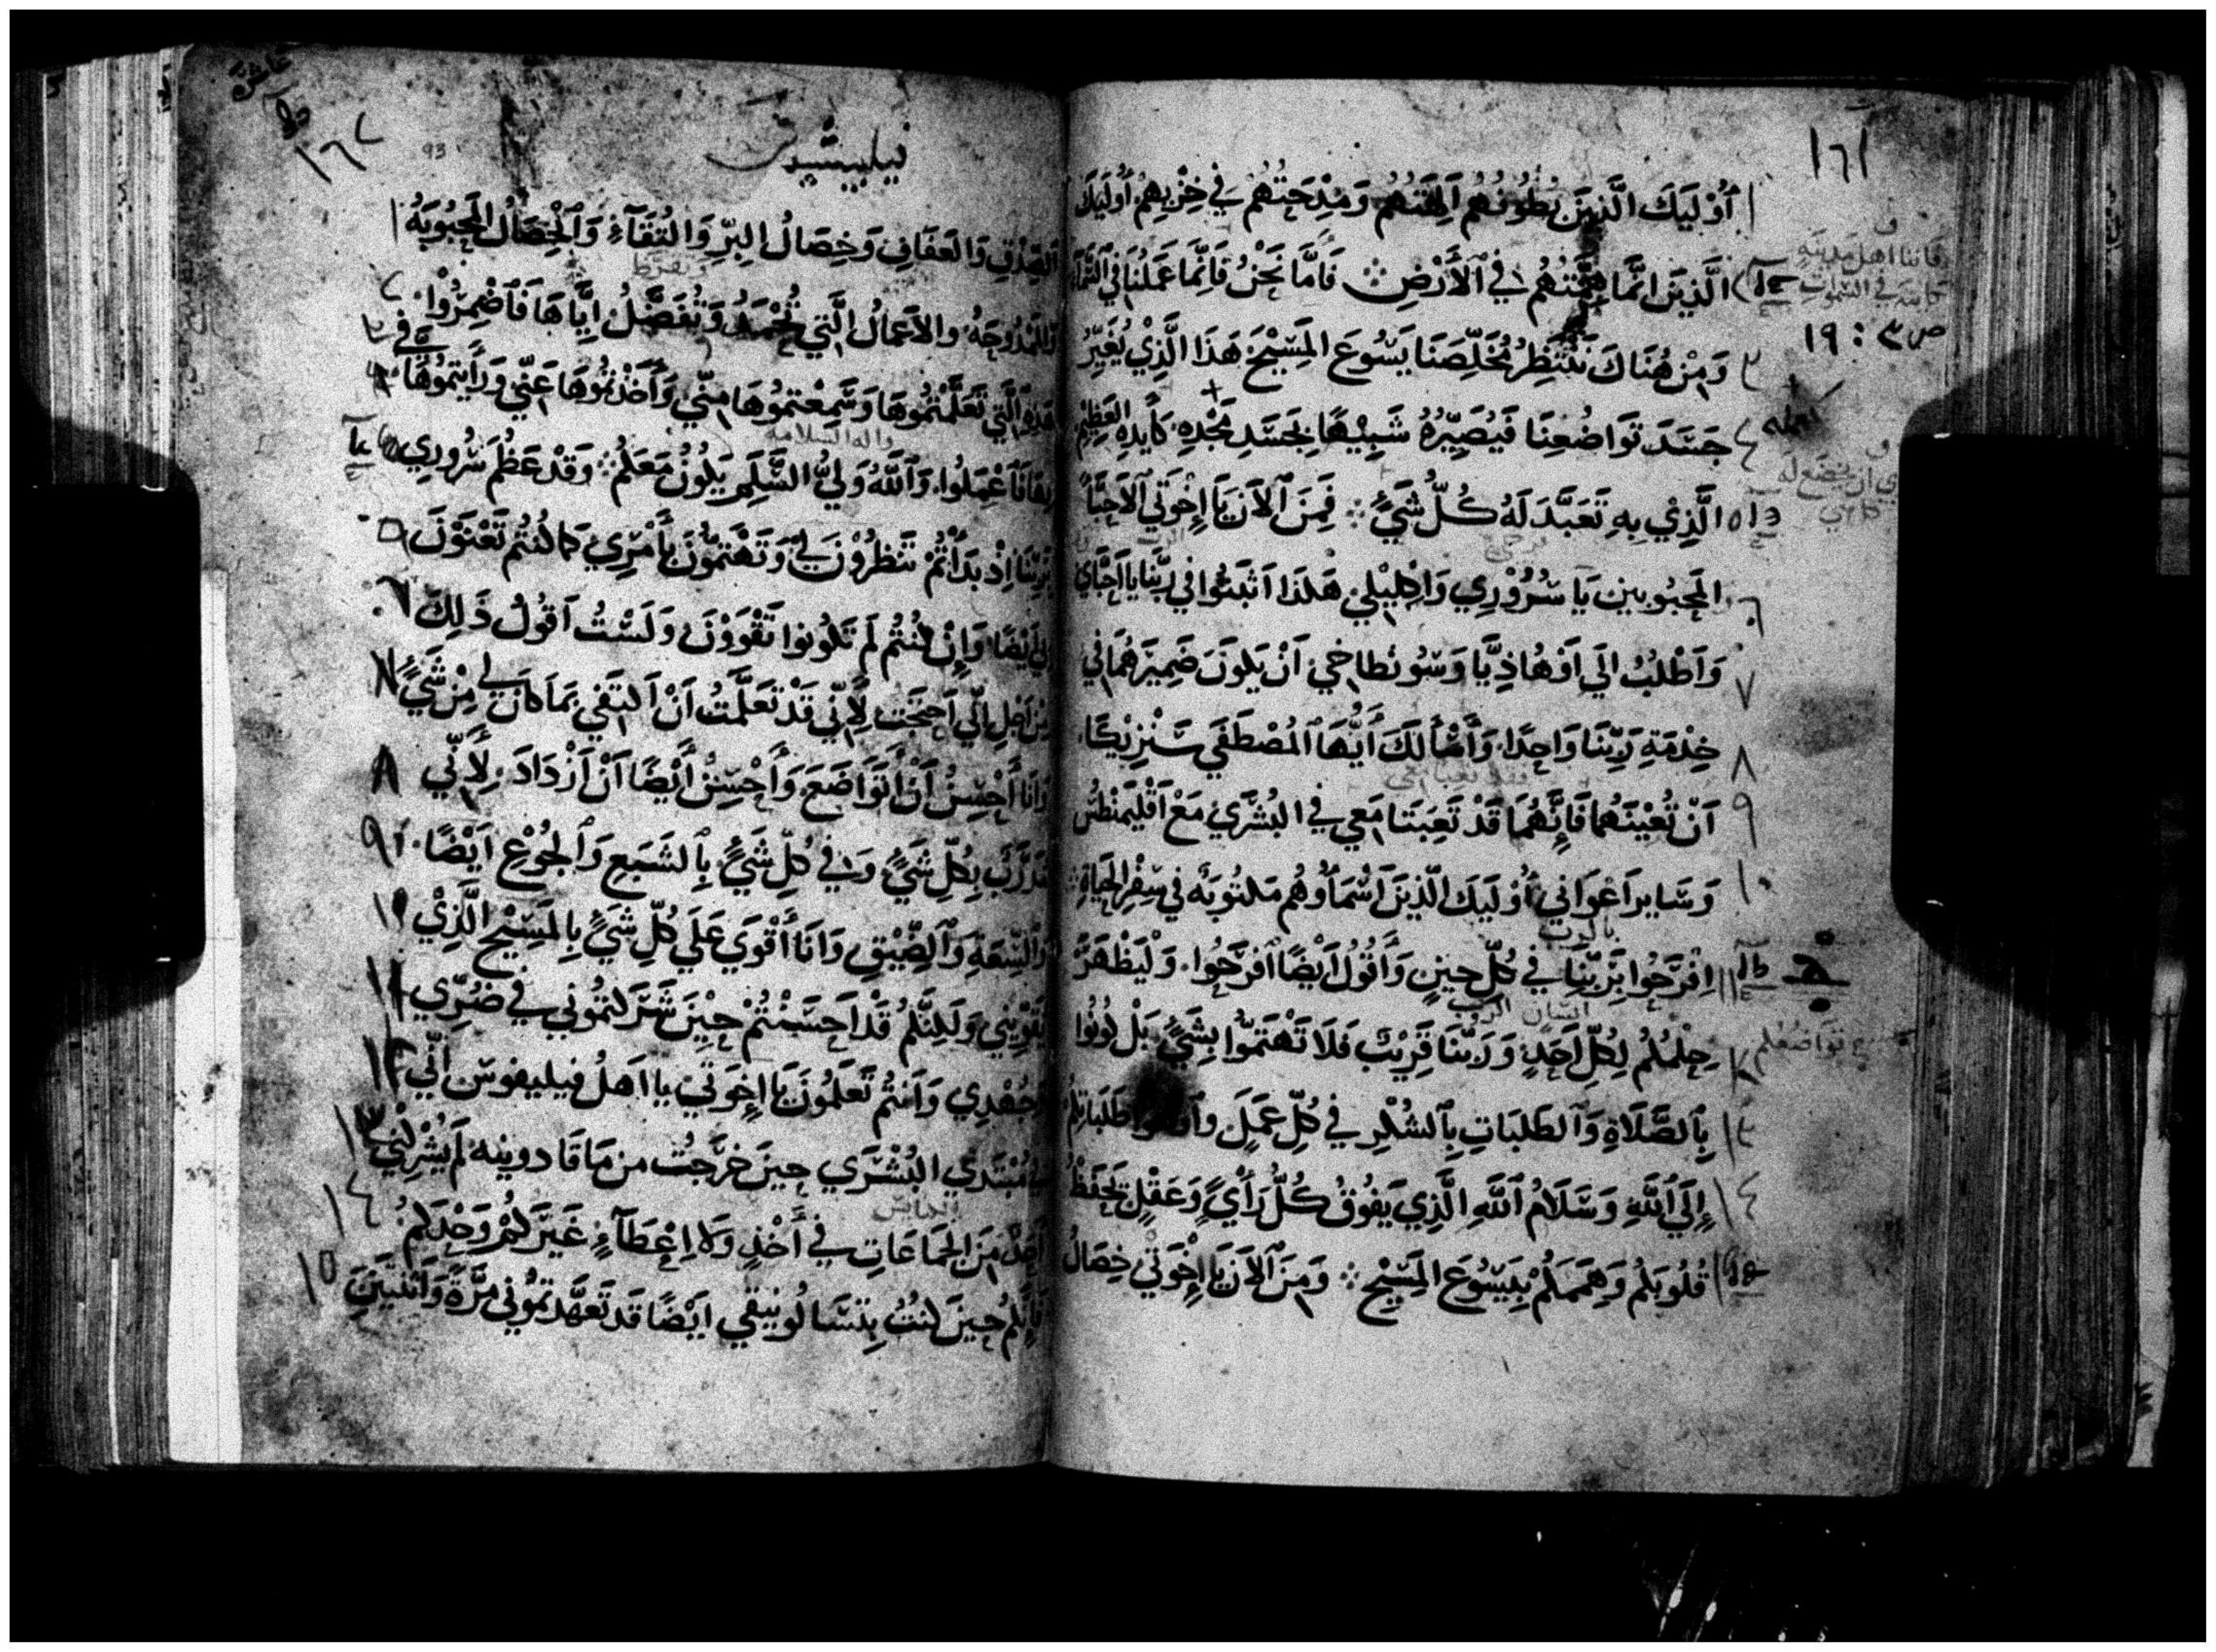 ١٦١
١ أُوْلَيِكَ الَّذِيْنَ بُطُوْنُهُم اَلِهَتُهُم وَمِدْحَتُهُم فِي خِزْيِهِمْ أُولَيِكَ
الَّذِيْنَ اِنَّمَا هِمَّتُهُم فِي ٱلأَرْضِ ܀ فَأَمَّا نَحْنُ فَاِنَّمَا عَمَلُنَا فِي ٱلسَّمَآ
فاننا اهل مدينه
كاينه في السموات
ص ٣ : ١٩
٣ وَمِنْ هُنَاكَ نَنْتَظِرُ مُخَلِّصَنَا يَسُوعَ المَسِيْحَ هَذَا الَّذِيْ يُغَيِّرُ
٤ جَسَدَ تَوَاضُعِنَا فَيُصَيِّرُهُ شَبِيْهًا بِجَسَدِ مَجْدِهِ كَأَيدِهِ العَظِيْمِ
٥ الَّذِيْ بِهِ تَعَبَّدَ لَهُ كُلُّ شَيْءٍ ܀ فَمِنَ ٱلاَنَ يَا إِخْوَتِي ٱلاَحِبَّآ
٦ المَحْبُوبين يَا سُرُوْرِي وَاِكْلِيْلِي هَكَذَا اَثْبَتُوا فِي رَبِّنَا يا اَحِبَّاي
٧ وَاَطْلُبُ اِلَي اَوْهَادِيَّا وَسُونطاخي اَنْ يَكونَ ضَمِيرَهُمَا فِي
٨ خِدْمَةِ رَبِّنَا وَاحِدًا، وَأَسْأَلكَ أَيُّهَا ٱلمُصْطَفَي سَنْزِيْكَا،
٩ اَنْ تُعِيْنَهُمَا فَإِنَّهُمَا قَدْ تَعِبَتَا مَعِي فِي البُشْرَيْ مَعْ اَقْلِيمَنْطُسْ
١٠ وَسَاير اَعْوَانِي أُوْلَيِكَ الَّذِيْنَ اَسْمَاؤُهُم مَكتُوبَةٌ فِي سِفْرِ الحَيَاةِ ܀
بالرب
١١ اِفْرَحُوا بِرَبِّنَا فِي كُلِّ حِينٍ وَأَقُولُ اَيْضًا ٱفرَحُوا، وَلْيَظْهَرْ
١٢ حِلْمُكُم لِكُلِّ اَحَدٍ وَرَبُّنَا قَرِيْبٌ فَلاَ تَهْتَمُّوا بِشَيْءٍ بَلْ كُونُوا
تواضعكم
١٣ بِٱلصَّلَاةِ وَٱلطَلبَاتِ بِٱلشُكْرِ فِي كُلِّ عَمَلٍ طَلَباتِكُم
١٤ إِلَي ٱللَّهِ وَسَلاَمُ ٱللَّهِ الَّذِي يَفُوْقُ كُلَّ رَأْيٍ وَعَقْلٍ يَحْفَظُ
قُلُوبَكُم وَهِمَمَكُمْ بِيَسُوْعَ المَسِيْحِ ܀ وَمِنَ ٱلاَنَ يَا إِخْوَتِي خِصَالُ
١٦٢
93
فيلبيسيوس
ٱلصِّدْقِ وَالعَفَافِ وَخِصَالُ البِرِّ وَالتُقَآءِ وَٱلخِصَالُ المَحْبُوبَهُ ١
وَٱلمَمْدُوحَهُ والاَعمَالُ الَّتِي تُحْمَدُ وَتُفَضَّلُ اِيَّاهَا فَٱضْمِرُوْا، ٢
هَذِهِ ٱلَّتِي تَعَلَّمْتُمُوهَا وَسَمِعْتمُوهَا مِنِّي وَأَخَذْتمُوهَا عَنِّي وَرَأَيتمُوهَا، ٣
واله السلامه
فَٱعْمَلُوا، وَٱللَّهُ وَلِيُّ السَّلَمِ يَكُونُ مَعَكُم ܀ وَقَدْ عَظُمَ سُرُورِي
بِرَبِّنَا إِذْ بَدَأْتُمْ تَنْظُرُوْنَ لِي وَتَهْتَمُّونَ بِأَمْرِي كَمَا كُنْتُم تَعْنَوْنَ ٥
اَيْضًا وَإِنْ كُنْتُم لَم تَكُونوا تَقْوَوْنَ، وَلَسْتُ اَقُولُ ذَلِكَ ٦
مِنْ اَجْلِ اَنِّي اَحْتَجْتُ لِأَنِّي قَدْ تَعَلَّمتُ اَنْ اَكتَفِي بِمَا كَانَ لِي مِنْ شَيْءٍ ٧
وَاَنَا أُحْسِنُ أَنْ أَتَوَاضَعَ، وَأُحْسِنُ أَيْضًا اَنْ اَزْدَادَ، لأَنِّي ٨
مُدَرَّبٌ بِكُلِّ شَيْءٍ وَفِي كُلِّ شَيْءٍ بِٱلشَبَعِ وَٱلجُوْعِ اَيْضًا، ٩
وَٱلسِّعَةِ وَٱلضِّيْقِ وَاَنَا أَقْوَي عَلَي كُلِّ شَيْءٍ بِالمَسِيْحِ الَّذِيْ ١٠
يُقَوِّيْنِي وَلَكِنَّكُم قَدْ اَحْسَنْتُمْ حِيْنَ شَرَكتمُونِي فِي ضُرِّي ١١
وَجُهْدِي وَاَنتُم تَعْلَمُونَ يَا إِخوَتِي يا اَهلَ فيليفوس اَنِّي ١٢
فِي مُبْتَدَي البُشْرَي حِينَ خَرَجتُ من مَاقَادونيه لَم يُشْرِكْنِي ١٣
اَحَدٌ مِنَ الجَمَاعَاتِ فِي أَخْذٍ وَلا اِعْطَآءٍ غَيْرَكُمْ وَحْدَكُم، ١٤
فَاِنَّكُم حِينَ كُنْتُ بِتسَالُونيقي اَيْضًا قَد تَعَهَّدتمُونِي مَرَّةً وَاَثنَتَيْنِ ١٥